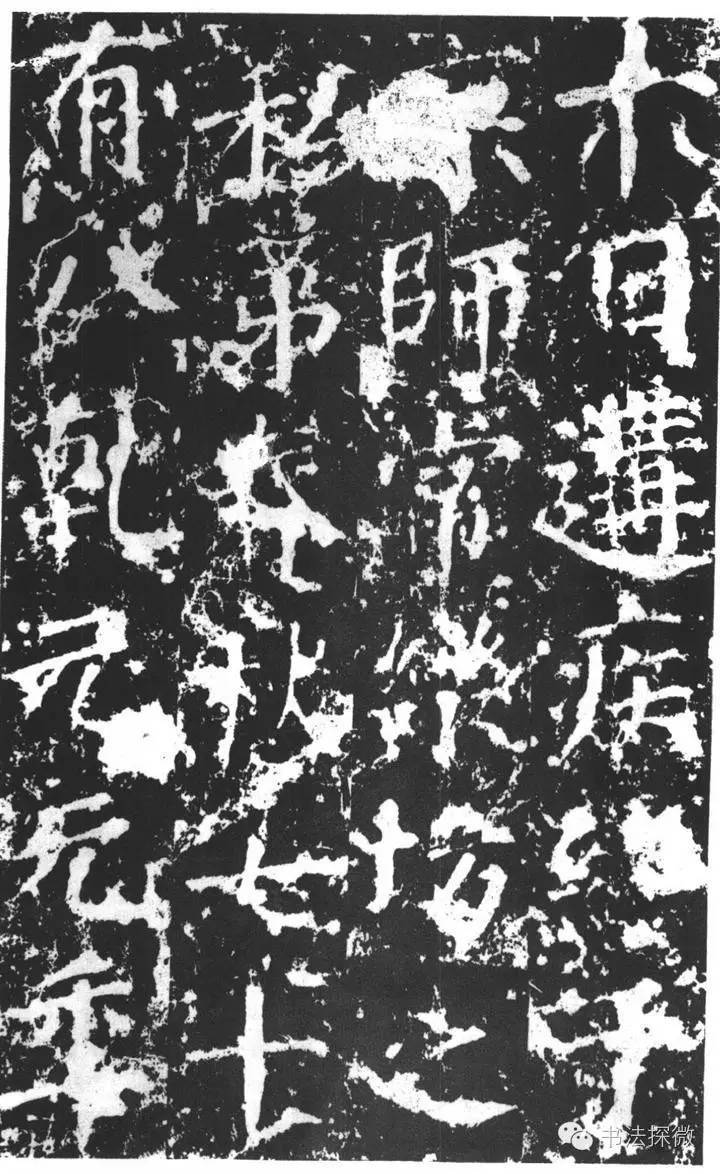 十日遘疾終于
京師常樂坊之
私第春秋七十
有八乾元元年
书法探微